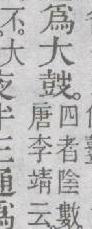 爲大鼓。
四者陰數
唐李靖云
夜半三通爲